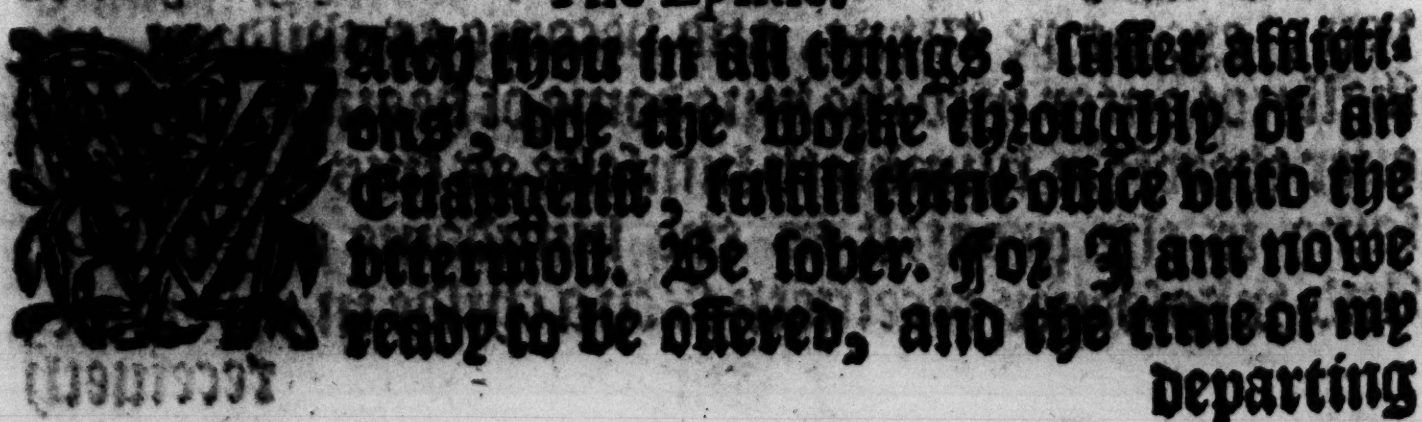 The Epistle.
WAtch thou in all things, suffer afflicti-
ons, doe the worke throughly of an
Euangelist, fulfill thine office vnto the
vttermost. Be sober. For I am nowe
ready to be offered, and the time of my
departing